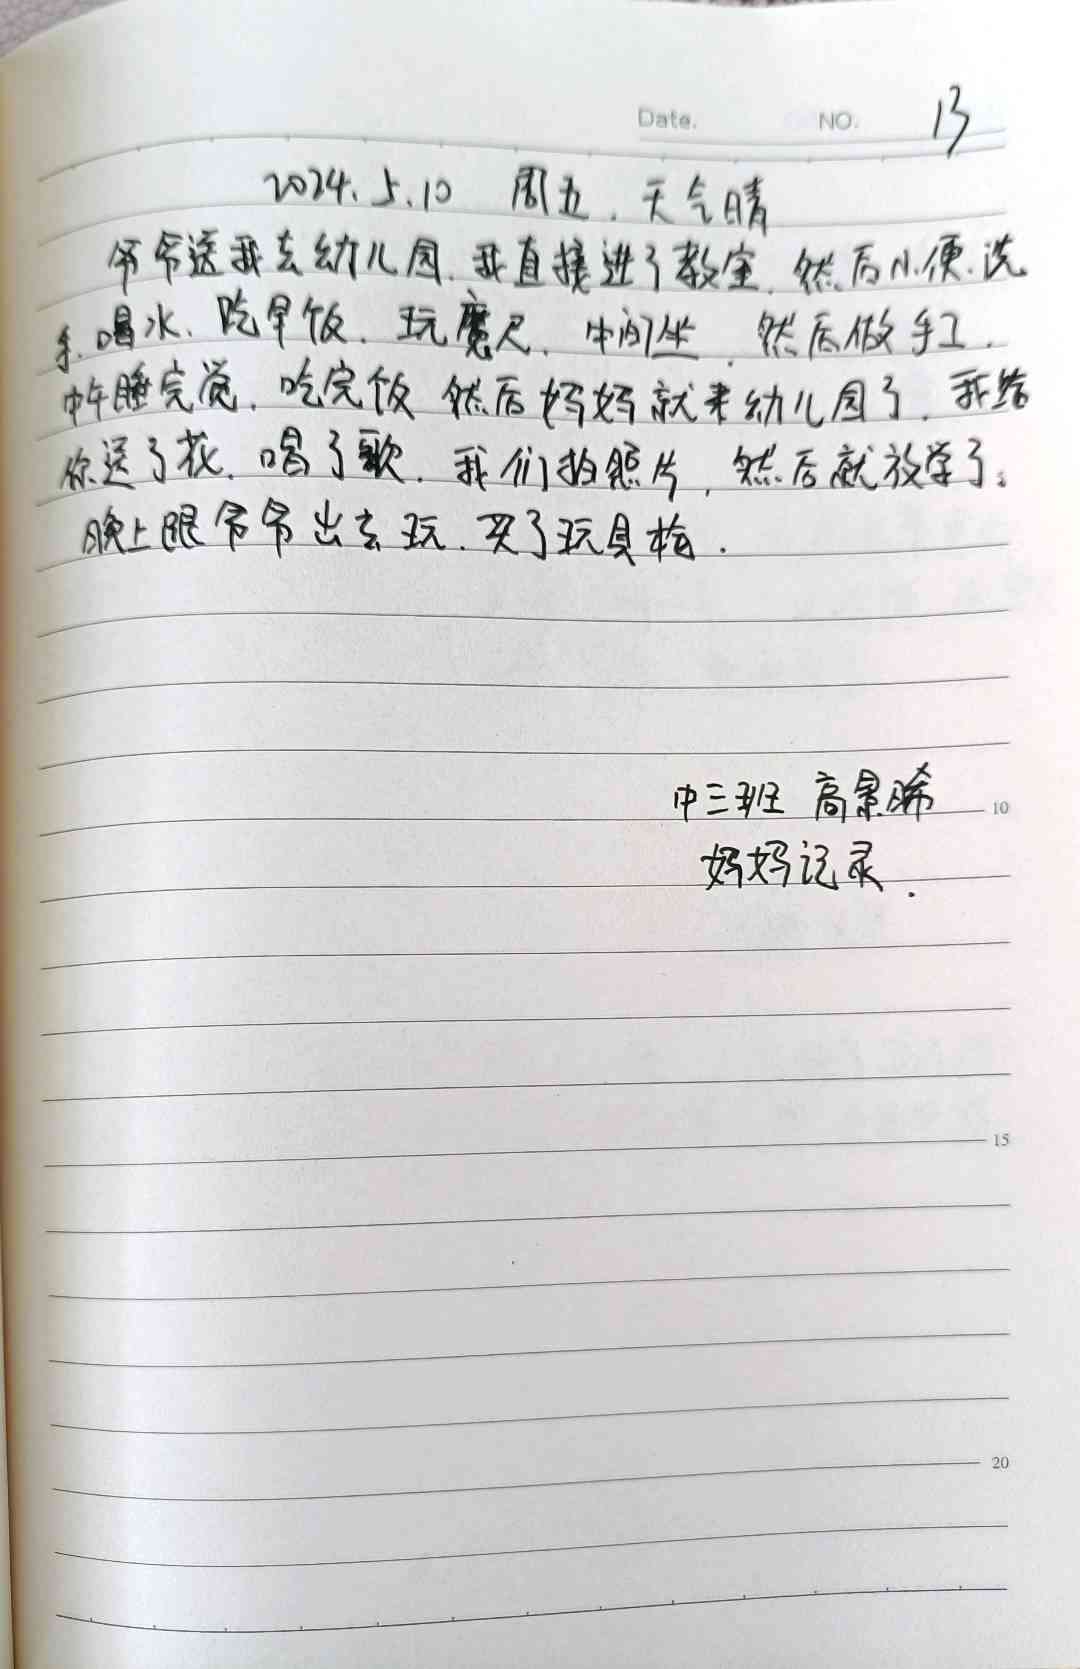 Date. NO. 13
2024.5.10 周五.天气晴
爷爷送我去幼儿园.我直接进了教室.然后小便.洗
手.喝水.吃早饭.玩魔尺.中间坐.然后做手工.
中午睡完觉.吃完饭 然后妈妈就来幼儿园了.我给
你送了花.唱了歌.我们拍照片,然后就放学了。
晚上跟爷爷出去玩.买了玩具枪.
中三班 高景晞
10
妈妈记录.
15
20